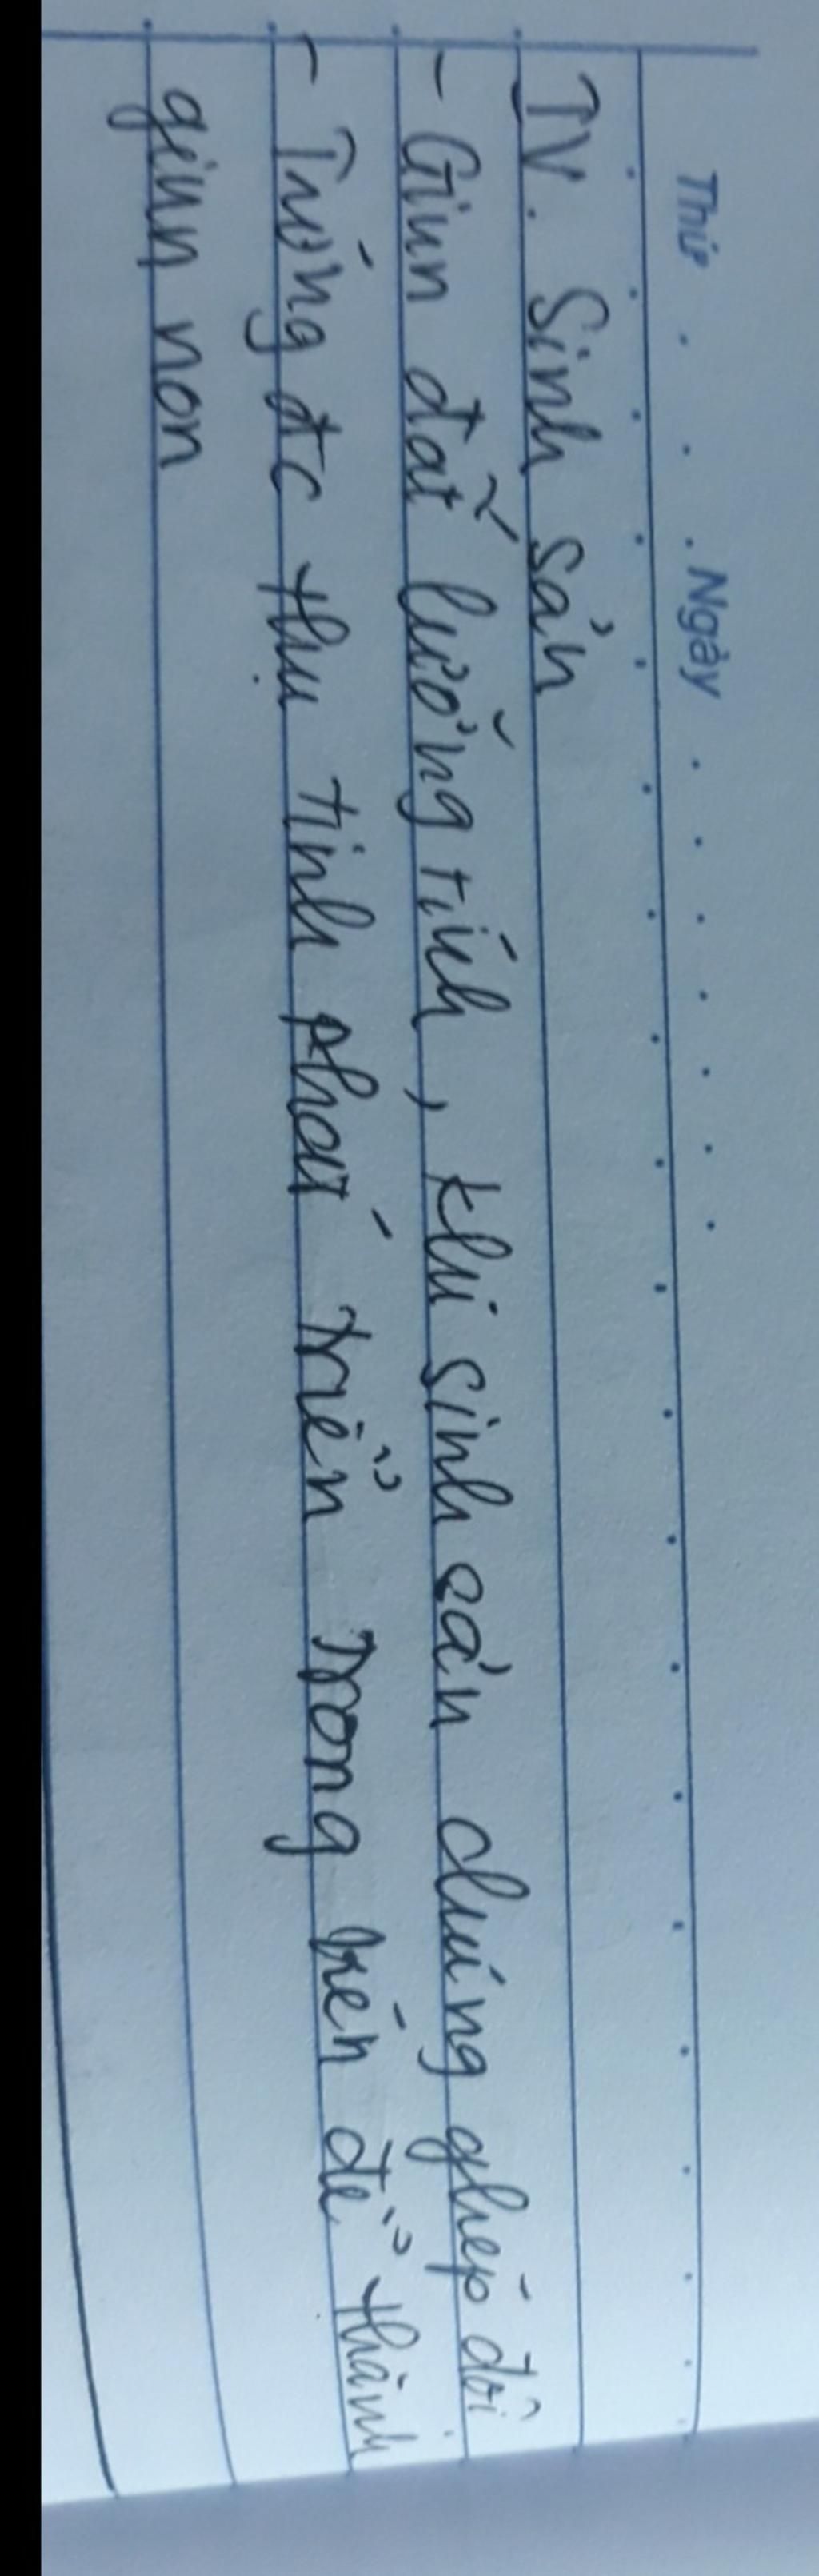 Thứ . . . Ngày . . . . . . .
IV. Sinh sản
- Giun đất lưỡng tính, khi sinh sản chúng ghép đôi
- Trứng đc thụ tinh phát triển trong kén để thành
giun non